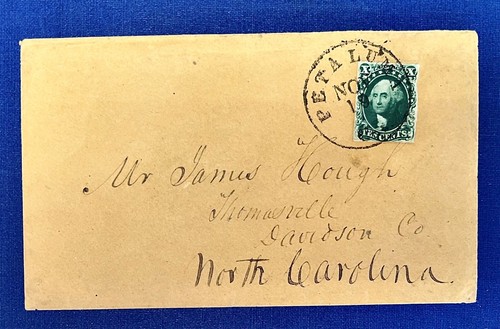 PETALUMA
NOV
18
TEN CENTS
Mr James Hough
Thomasville
Davidson Co
North Carolina